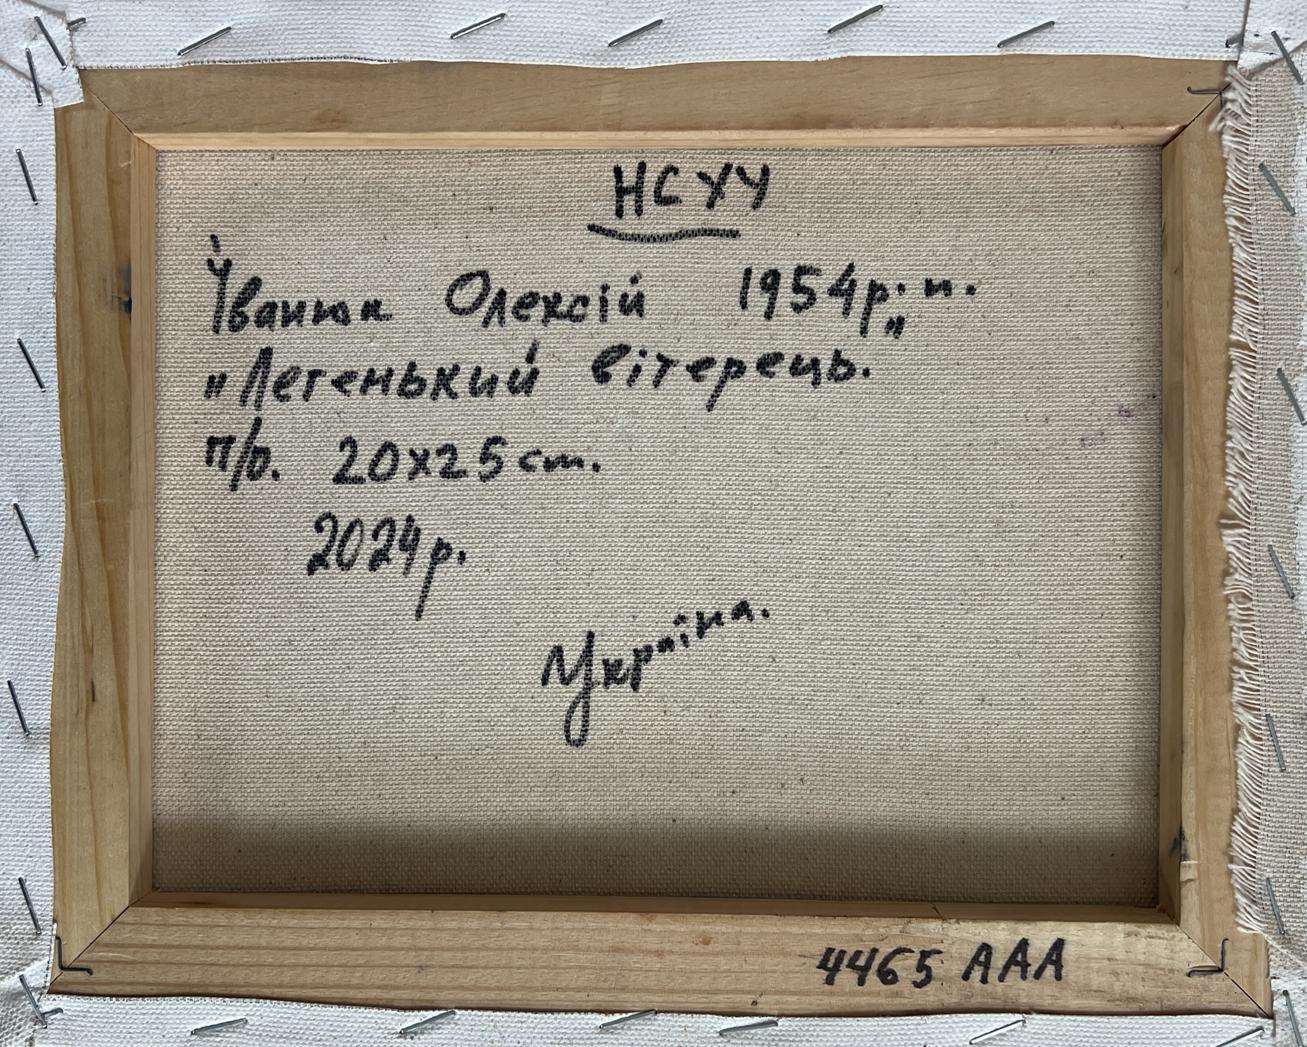 НСХУ
Іванюк Олексій 1954р.н.
"Легенький вітерець."
п/о. 20х25 см.
2024р.
Україна.
4465 ААА